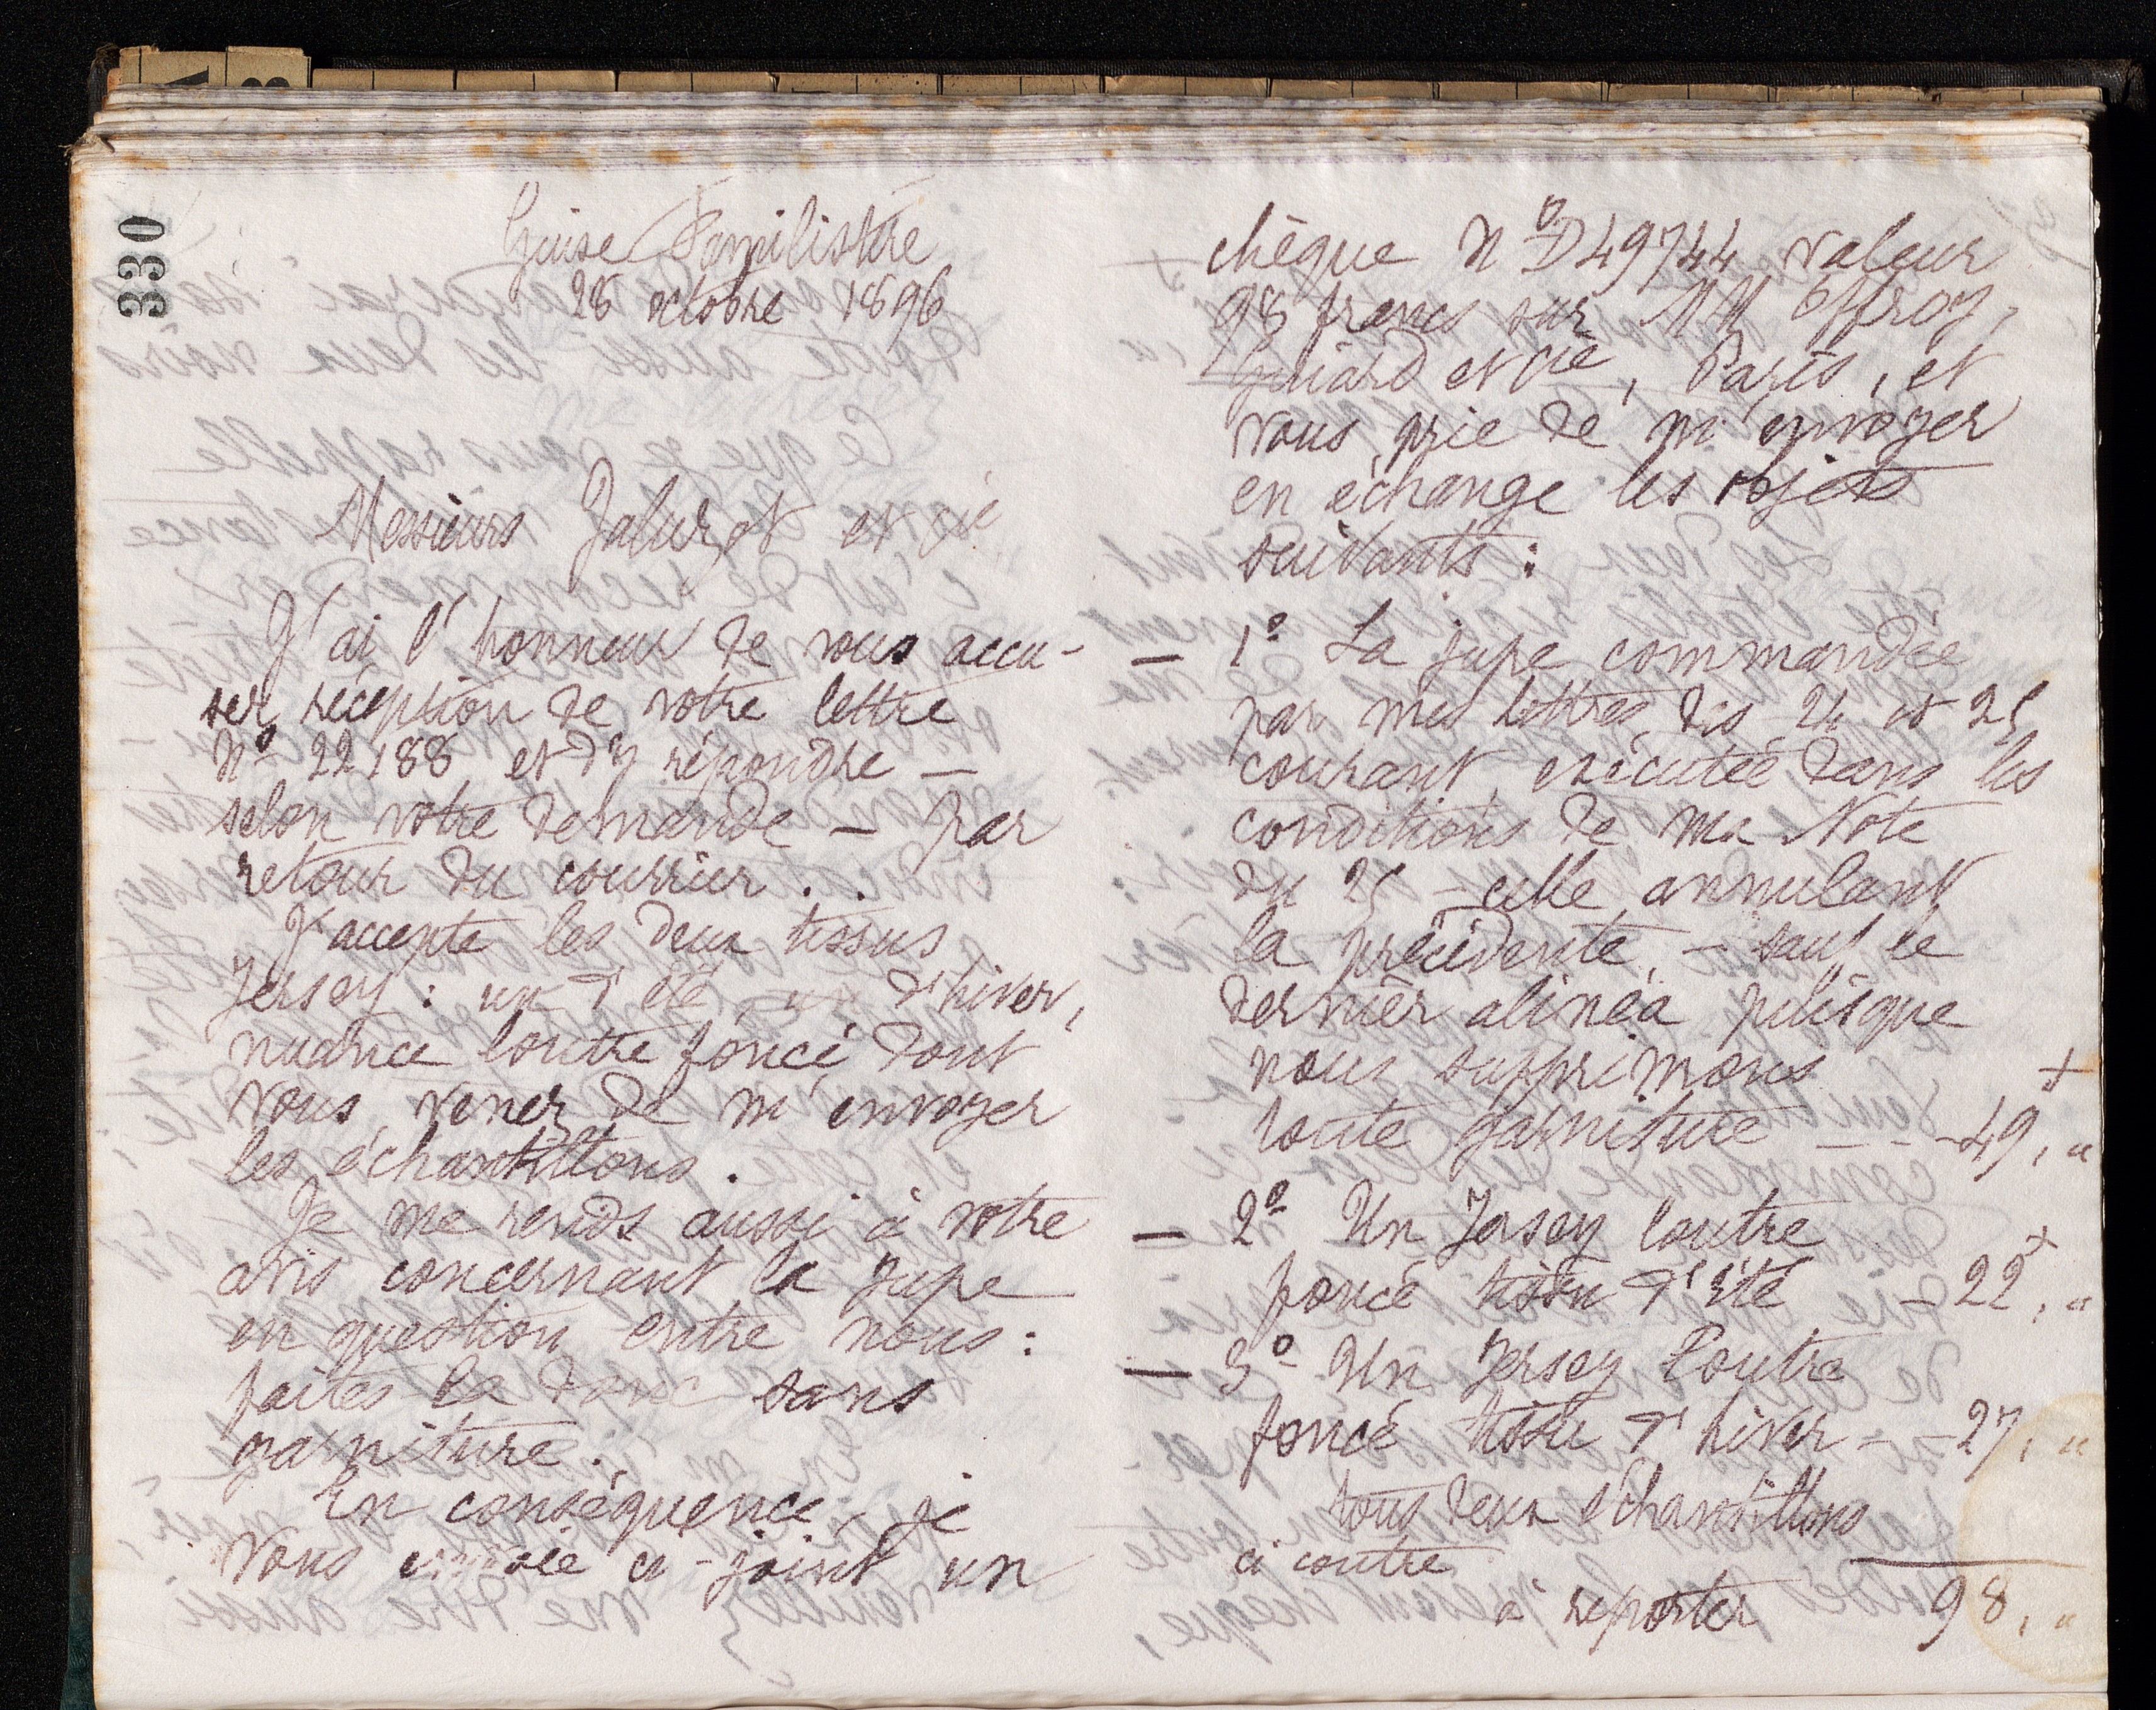 330
Guise Familistère
28 octobre 1896
Messieurs Jaluzot et Cie
J'ai l'honneur de vous accu-
ser réception de votre lettre
No 22188 et d'y répondre —
selon votre demande — par
retour du courrier . .
J'accepte les deux tissus
Jersey : un d'été, un d'hiver,
nuance loutre foncé dont
vous venez de m'envoyer
les échantillons.
Je me rends aussi à votre
avis concernant la jupe
en question entre nous :
faites la donc sans
garniture.
En conséquence, je
vous envoie ci-joint un
chèque No D49744 valeur
98 francs sur MM Offroy,
Guiard et Cie, Paris, et
vous prie de m'envoyer
en échange les objets
suivants :
— 1o La jupe commandée
par mes lettres des 24 et 25
courant, exécutée dans les
conditions de ma Note
du 25 – celle annulant
la précédente, – sauf le
dernier alinéa puisque
nous supprimons +
toute garniture — - - 49, "
— 2o Un Jersey loutre +
foncé tissu d'été – 22, "
— 3o Un Jersey loutre
foncé tissu d'hiver - – 27, "
tous deux échantillons
ci contre
à reporter 98, "